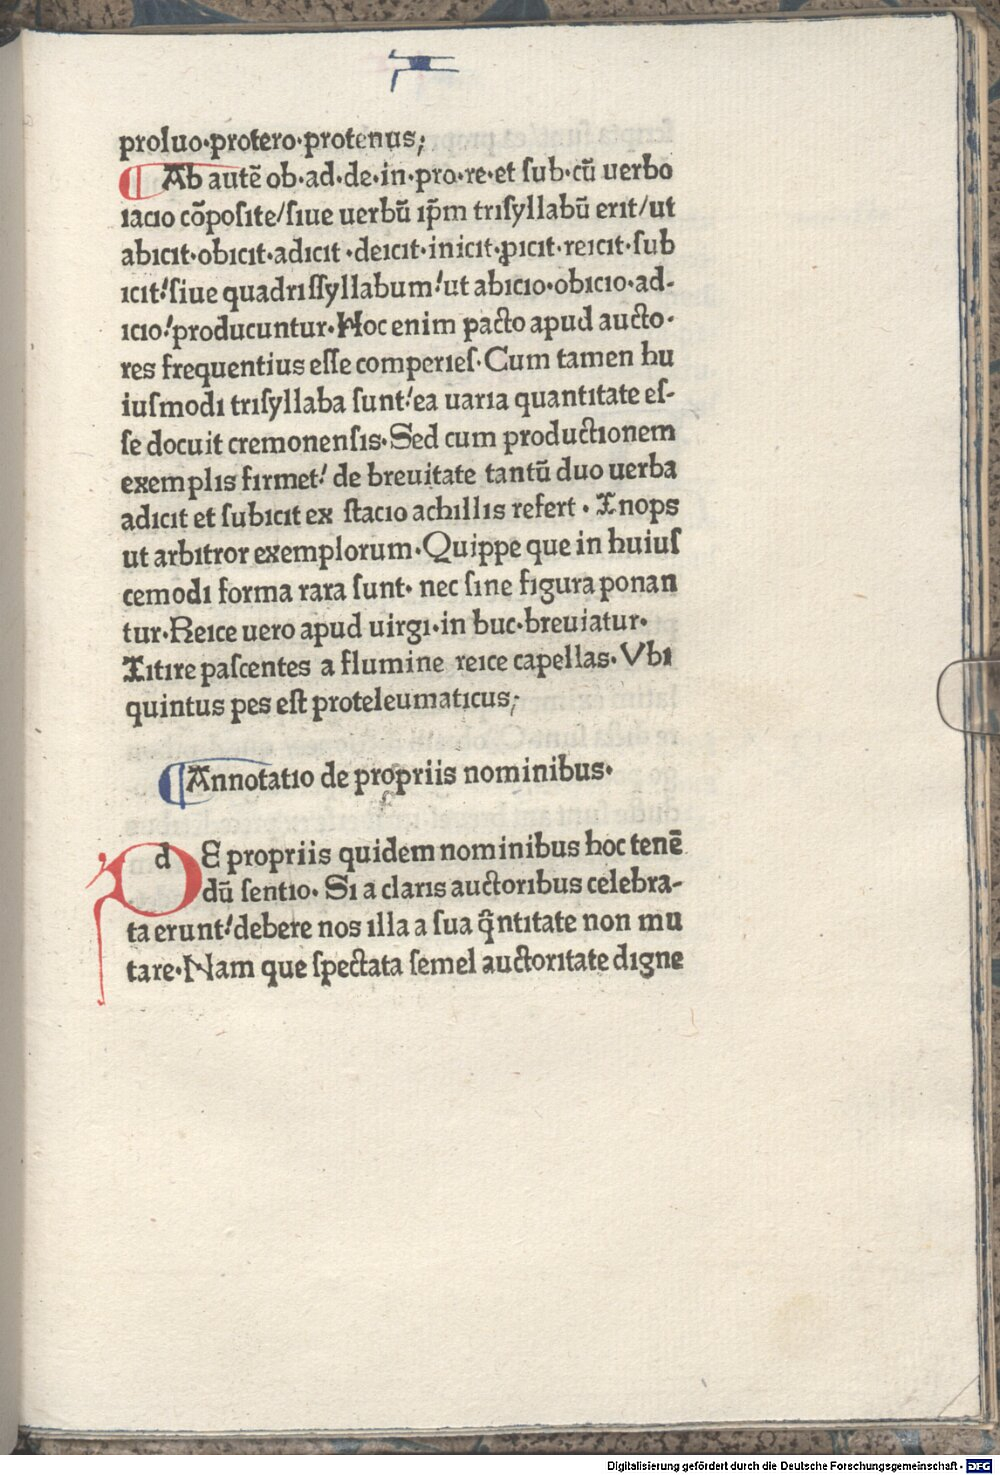 proluo·protero·protenus;
¶ Ab autē ob·ad·de·in·pro·re·et ſub·cū uerbo
ıacıo cōpoſıte/ſıue uerbū ıp̄m trıſyllabū erıt/ut
abıcıt·obıcıt·adıcıt·deıcıt·ınıcıt·ꝓıcıt·reıcıt·ſub
ıcıt!ſıue quadrıſſyllabum!ut abıcıo·obıcıo·ad-
ıcıo!producuntur·Hoc enim pacto apud aucto-
res frequentius eſſe comperıeſ·Cum tamen hu
iuſmodı trıſyllaba ſunt!ea uarıa quantıtate eſ-
ſe docuit cremonenſıs·Sed cum productıonem
exemplıs fırmet! de breuitate tantū duo uerba
adıcıt et ſubıcıt ex ſtacıo achıllıs refert·Inops
ut arbıtror exemplorum·Quippe que in huiuſ
cemodı forma rara ſunt· nec ſıne fıgura ponan
tur·Reıce uero apud uırgı·in buc·breuiatur·
Tıtıre paſcentes a flumıne reıce capellas·Vbı
quintus pes eſt proteleumatıcus;
¶ Annotatıo de propriis nominibus·
d E propriis quidem nominibus hoc tenē
dū ſentio·Sı a clarıs auctorıbus celebra-
ta erunt!debere nos ılla a ſua q̄ntıtate non mu
tare·Nam que ſpectata ſemel auctorıtate dıgne
Digitalisierung gefördert durch die Deutsche Forschungsgemeinschaft - DFG